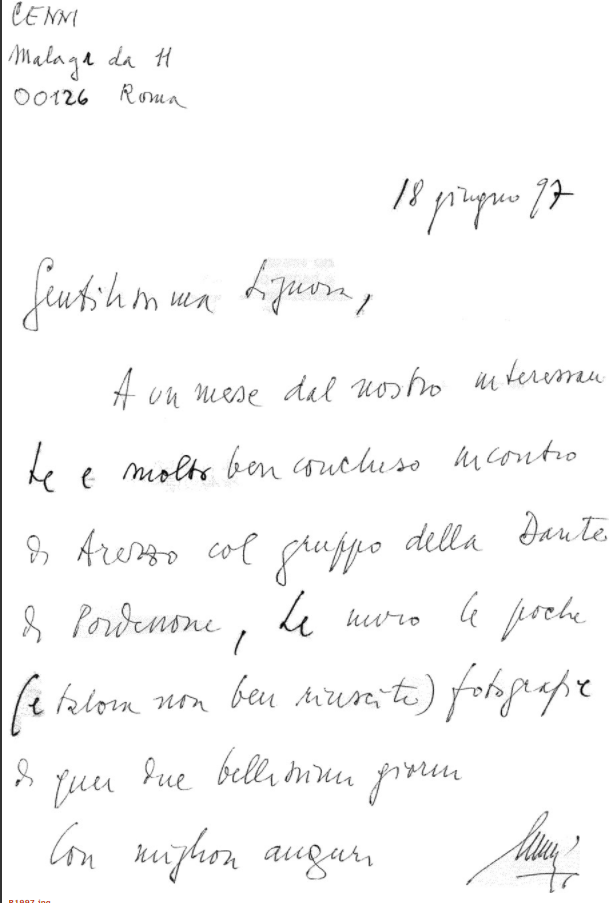 CENNI
Malaga da 11
00126 Roma
18 giugno 97
Gentilissima Signora,
A un mese dal nostro interessan
te e molto ben concluso incontro
di Arezzo col gruppo della Dante
di Pordenone, Le invio le poche
(e talora non ben riuscite) fotografie
di quei due bellissimi giorni
Con migliori auguri
Cenni